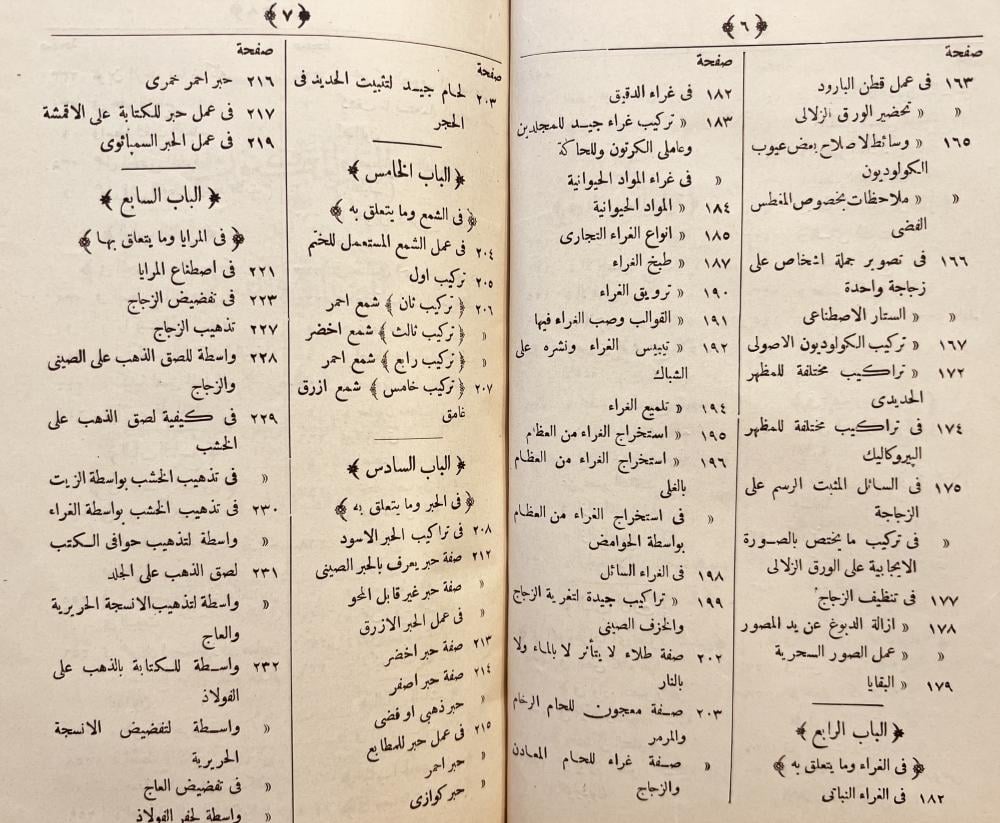 ﴿ ٦ ﴾
صفحة
١٦٣ فى عمل قطن البارود
« « تحضير الورق الزلالى
١٦٥ « وسائط لاصلاح بعض عيوب
الكولوديون
« « ملاحظات بخصوص المغطس
الفضى
١٦٦ فى تصوير جملة اشخاص على
زجاجة واحدة
« « الستار الاصطناعى
١٦٧ « تركيب الكولوديون الاصولى
١٧٢ « تراكيب مختلفة للمظهر
الحديدى
١٧٤ فى تراكيب مختلفة للمظهر
الپيروكاليك
١٧٥ فى السائل المثبت الرسم على
الزجاجة
« فى تركيب ما يختص بالصورة
الايجابية على الورق الزلالى
١٧٧ فى تنظيف الزجاج
١٧٨ « ازالة الدبوغ عن يد المصور
« « عمل الصور السحرية
١٧٩ « البقايا
﴿ الباب الرابع ﴾
﴿ فى الغراء وما يتعلق به ﴾
١٨٢ فى الغراء النباتى
صفحة
١٨٢ فى غراء الدقيق
١٨٣ « تركيب غراء جيد للمجلدين
وعاملى الكرتون وللحاكة
« فى غراء المواد الحيوانية
١٨٤ « المواد الحيوانية
١٨٥ « انواع الغراء التجارى
١٨٧ « طبخ الغراء
١٩٠ « ترويق الغراء
١٩١ « القوالب وصب الغراء فيها
١٩٢ « تيبيس الغراء ونشره على
الشباك
١٩٤ « تلميع الغراء
١٩٥ « استخراج الغراء من العظام
١٩٦ « استخراج الغراء من العظام
بالغلى
« فى استخراج الغراء من العظام
بواسطة الحوامض
١٩٨ فى الغراء السائل
١٩٩ « تراكيب جيدة لتغرية الزجاج
والخزف الصينى
٢٠٢ صفة طلاء لا يتأثر لا بالماء ولا
بالنار
٢٠٣ صفة معجون للحام الرخام
والمرمر
« صفة غراء للحام المعادن
والزجاج
﴿ ٧ ﴾
صفحة
٢٠٣ لحام جيد لتثبيت الحديد فى
الحجر
﴿ الباب الخامس ﴾
﴿ فى الشمع وما يتعلق به ﴾
٢٠٤ فى عمل الشمع المستعمل للختم
٢٠٥ تركيب اول
٢٠٦ ﴿ تركيب ثان ﴾ شمع احمر
« ﴿ تركيب ثالث ﴾ شمع اخضر
« ﴿ تركيب رابع ﴾ شمع احمر
٢٠٧ ﴿ تركيب خامس ﴾ شمع ازرق
غامق
﴿ الباب السادس ﴾
﴿ فى الحبر وما يتعلق به ﴾
٢٠٨ فى تراكيب الحبر الاسود
٢١٢ صفة حبر يعرف بالحبر الصينى
« صفة حبر غير قابل المحو
« فى عمل الحبر الازرق
٢١٣ صفة حبر اخضر
٢١٤ صفة حبر اصفر
« حبر ذهبى او فضى
٢١٥ فى عمل حبر للمطابع
« حبر احمر
« حبر كوازى
صفحة
٢١٦ حبر احمر خمرى
٢١٧ فى عمل حبر للكتابة على الاقمشة
٢١٩ فى عمل الحبر السمباتوى
﴿ الباب السابع ﴾
﴿ فى المرايا وما يتعلق بها ﴾
٢٢١ فى اصطناع المرايا
٢٢٣ فى تفضيض الزجاج
٢٢٧ تذهيب الزجاج
٢٢٨ واسطة للصق الذهب على الصينى
والزجاج
٢٢٩ فى كيفية لصق الذهب على
الخشب
« فى تذهيب الخشب بواسطة الزيت
٢٣٠ فى تذهيب الخشب بواسطة الغراء
« واسطة لتذهيب حوافى الكتب
٢٣١ لصق الذهب على الجلد
« واسطة لتذهيب الانسجة الحريرية
والعاج
٢٣٢ واسطة للكتابة بالذهب على
الفولاذ
« واسطة لتفضيض الانسجة
الحريرية
« فى تفضيض العاج
« واسطة لحفر الفولاذ